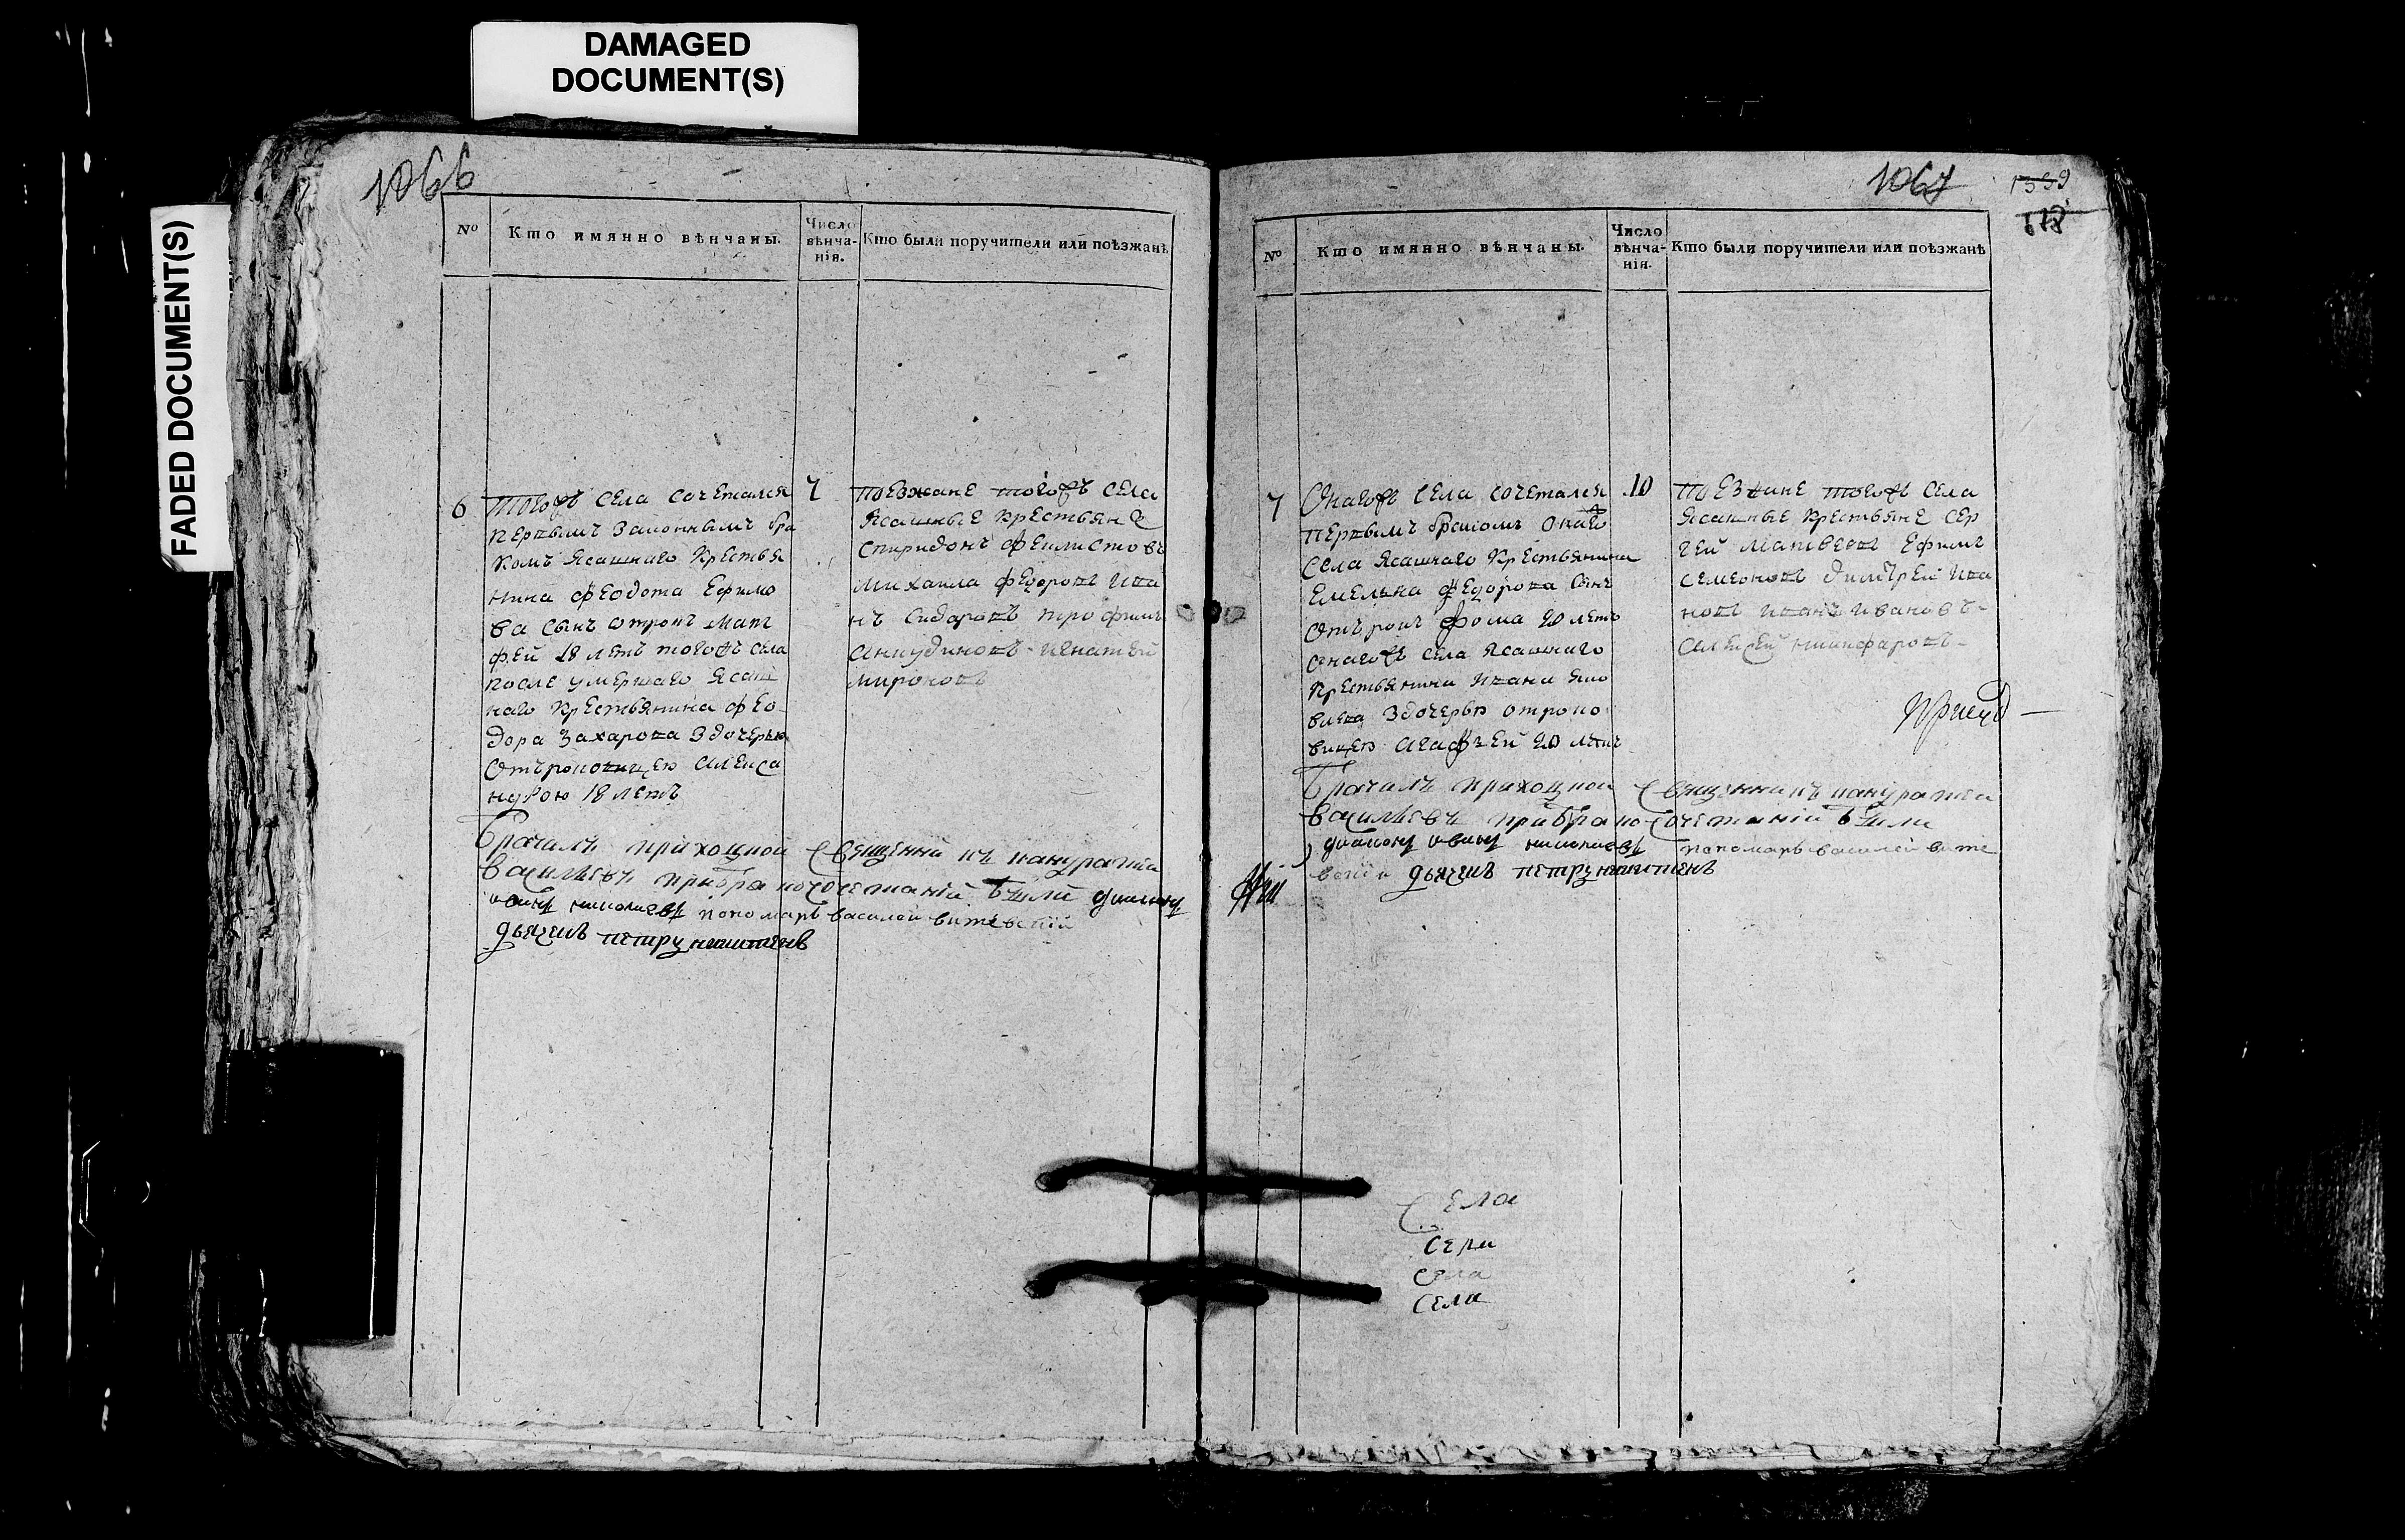 DAMAGED
DOCUMENT(S)
FADED DOCUMENT(S)
1066
№
Кто имянно вѣнчаны.
Число
вѣнча-
нія.
Кто были поручители или поѣзжанѣ
6
тогожъ села сочетался
первымъ законнымъ бра
комъ ясашнаго крестья
нина феодота Ефимо
ва сынъ отрокъ Мат
фей 18 летъ тогожъ села
после умершаго ясаш
наго крестьянина фео
дора Захарова здочерью
отъроковицею Алекса
ндрою 18 летъ
7
поезжане тогожъ села
ясашные крестьяне
спиридонъ феилистовъ
михаила федоровъ ива
нъ сидаровъ трофимъ
анкудиновъ игнатей
мироновъ
Брачилъ приходной священникъ панкратій
васильевъ при бракосочетаніи были
пономарь василей
дьячекъ петръ никитинъ
1067
1339
678
№
Кто имянно вѣнчаны.
Число
вѣнча-
нія.
Кто были поручители или поѣзжанѣ
7
Онагожъ села сочетался
первымъ бракомъ онаго
села ясашнаго крестьянина
Емельяна федорова сынъ
отърокъ фома 20 летъ
онагожъ села ясашнаго
крестьянина ивана яко
влева здочерью отроко
вицею агафьей 20 летъ
10
поезжане тогожъ села
ясашные крестьяне сер
гей матвеевъ Ефимъ
семеновъ димитрей ива
новъ иванъ ивановъ
алексей никифоровъ
Брачилъ приходной священникъ панкратій
васильевъ при бракосочетаніи были
пономарь василей
дьячекъ петръ никитинъ
Села
села
села
села